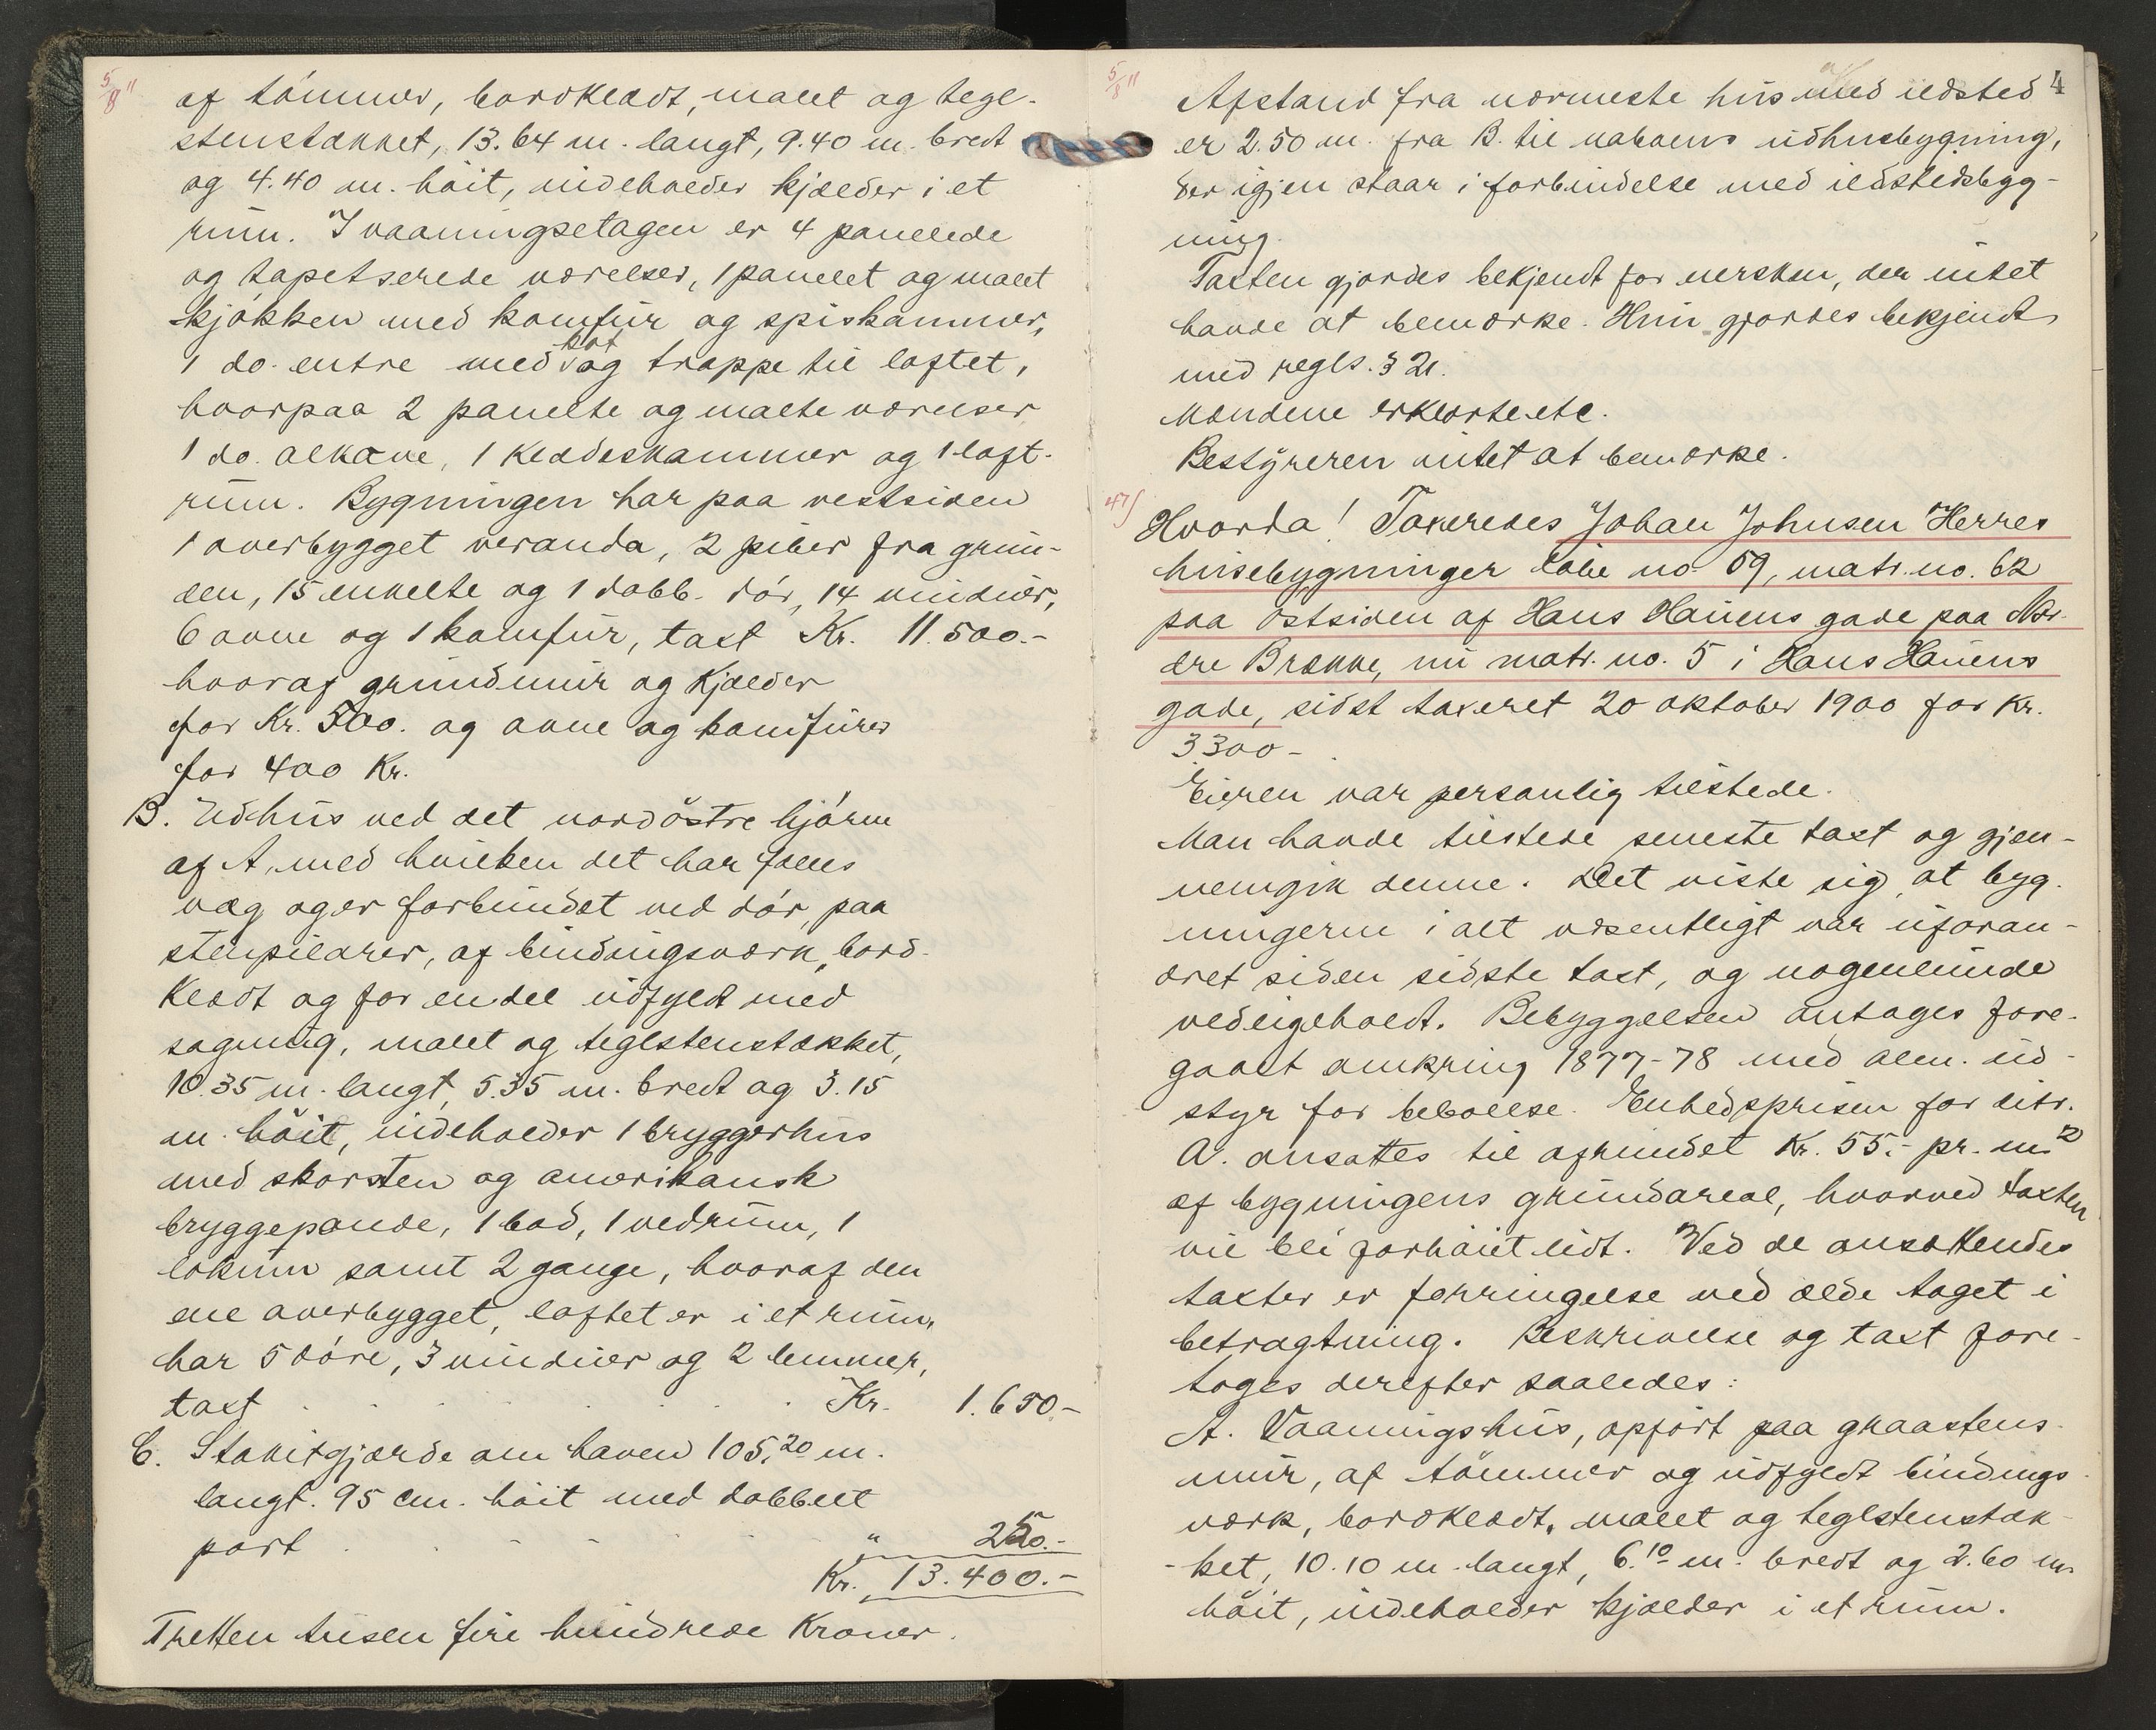 5/8 11
af tömmer, bordklædt, malet og tegl-
stenstækket, 13.64 m. langt, 9.40 m. bredt
og 4.40 m. höit, indeholder kjælder i et
rum. I vaaningsetagen er 4 panelede
og tapetserede værelser, 1 panelet og malet
kjökken med komfur og spiskammer,
1 do. entre med kot og trappe til loftet,
hvorpaa 2 panelte og malte værelser
1 do. alkove, 1 klædeskammer og 1 loft-
rum. Bygningen har paa vestsiden
1 overbygget veranda, 2 piber fra grun-
den, 15 enkelte og 1 dobb. dör, 14 vinduer,
6 ovne og 1 komfur, taxt Kr. 11.500.-
hvoraf grundmur og kjælder
for Kr. 500. og ovne og komfurer
for 400 Kr.
B. Udhus ved det nordöstre hjörne
af A, med hvilken det har fælles
væg og er forbundet ved dör, paa
stenpilarer, af bindingsværk, bord-
klædt og for en del udfyldt med
sagmug, malet og teglstenstækket,
10.35 m. langt, 5.35 m. bredt og 3.15
m. höit, indeholder 1 bryggerhus
med skorsten og amerikansk
bryggepande, 1 bod, 1 vedrum, 1
lokum samt 2 gange, hvoraf den
ene overbygget, loftet er i et rum,
har 5 döre, 3 vinduer og 2 lemmer,
taxt . . . . . . . Kr. 1.650.-
C. Stakitgjærde om haven 105.20 m.
langt. 95 cm. höit med dobbelt
port . . - - - - - " 250.-
Kr. 13.400.-
Tretten tusen fire hundrede Kroner.
5/8 11
4
Afstand fra nærmeste hus med ildsted
er 2.50 m. fra B. til naboens udhusbygning,
der igjen staar i forbindelse med ildstedsbyg-
ning.
Taxten gjordes bekjendt for eiersken, der intet
havde at bemærke. Hun gjordes bekjendt
med regls. § 21.
Mændene erklærte etc.
Bestyreren intet at bemærke.
47/
Hvorda! Taxeredes Johan Johnsen Herres
husebygninger löbe no. 59, matr. no. 62
paa östsiden af Hans Hauens gade paa Nor-
dre Brække, nu matr. no. 5 i Hans Hauens
gade, sidst taxeret 20 oktober 1900 for Kr.
3300-
Eieren var personlig tilstede.
Man havde tilstede seneste taxt og gjen-
nemgik denne. Det viste sig, at byg-
ningerne i alt væsentligt var uforan-
dret siden sidste taxt, og nogenlunde
vedligeholdt. Bebyggelsen antages fore-
gaaet omkring 1877-78 med alm. ud-
styr for beboelse. Enhedsprisen for litr.
A. ansattes til afrundet Kr. 55.- pr. m2
af bygningens grundareal, hvorved taxten
vil bli forhöiet lidt. Ved de ansættendes
taxter er forringelse ved ælde taget i
betragtning. Beskrivelse og taxt fore-
toges derefter saaledes:
A. Vaaningshus, opfört paa graastens
mur, af tömmer og udfyldt bindings-
værk, bordklædt, malet og teglstenstæk-
-ket, 10.10 m. langt, 6.10 m. bredt og 2.60 m.
höit, indeholder kjælder i et rum.